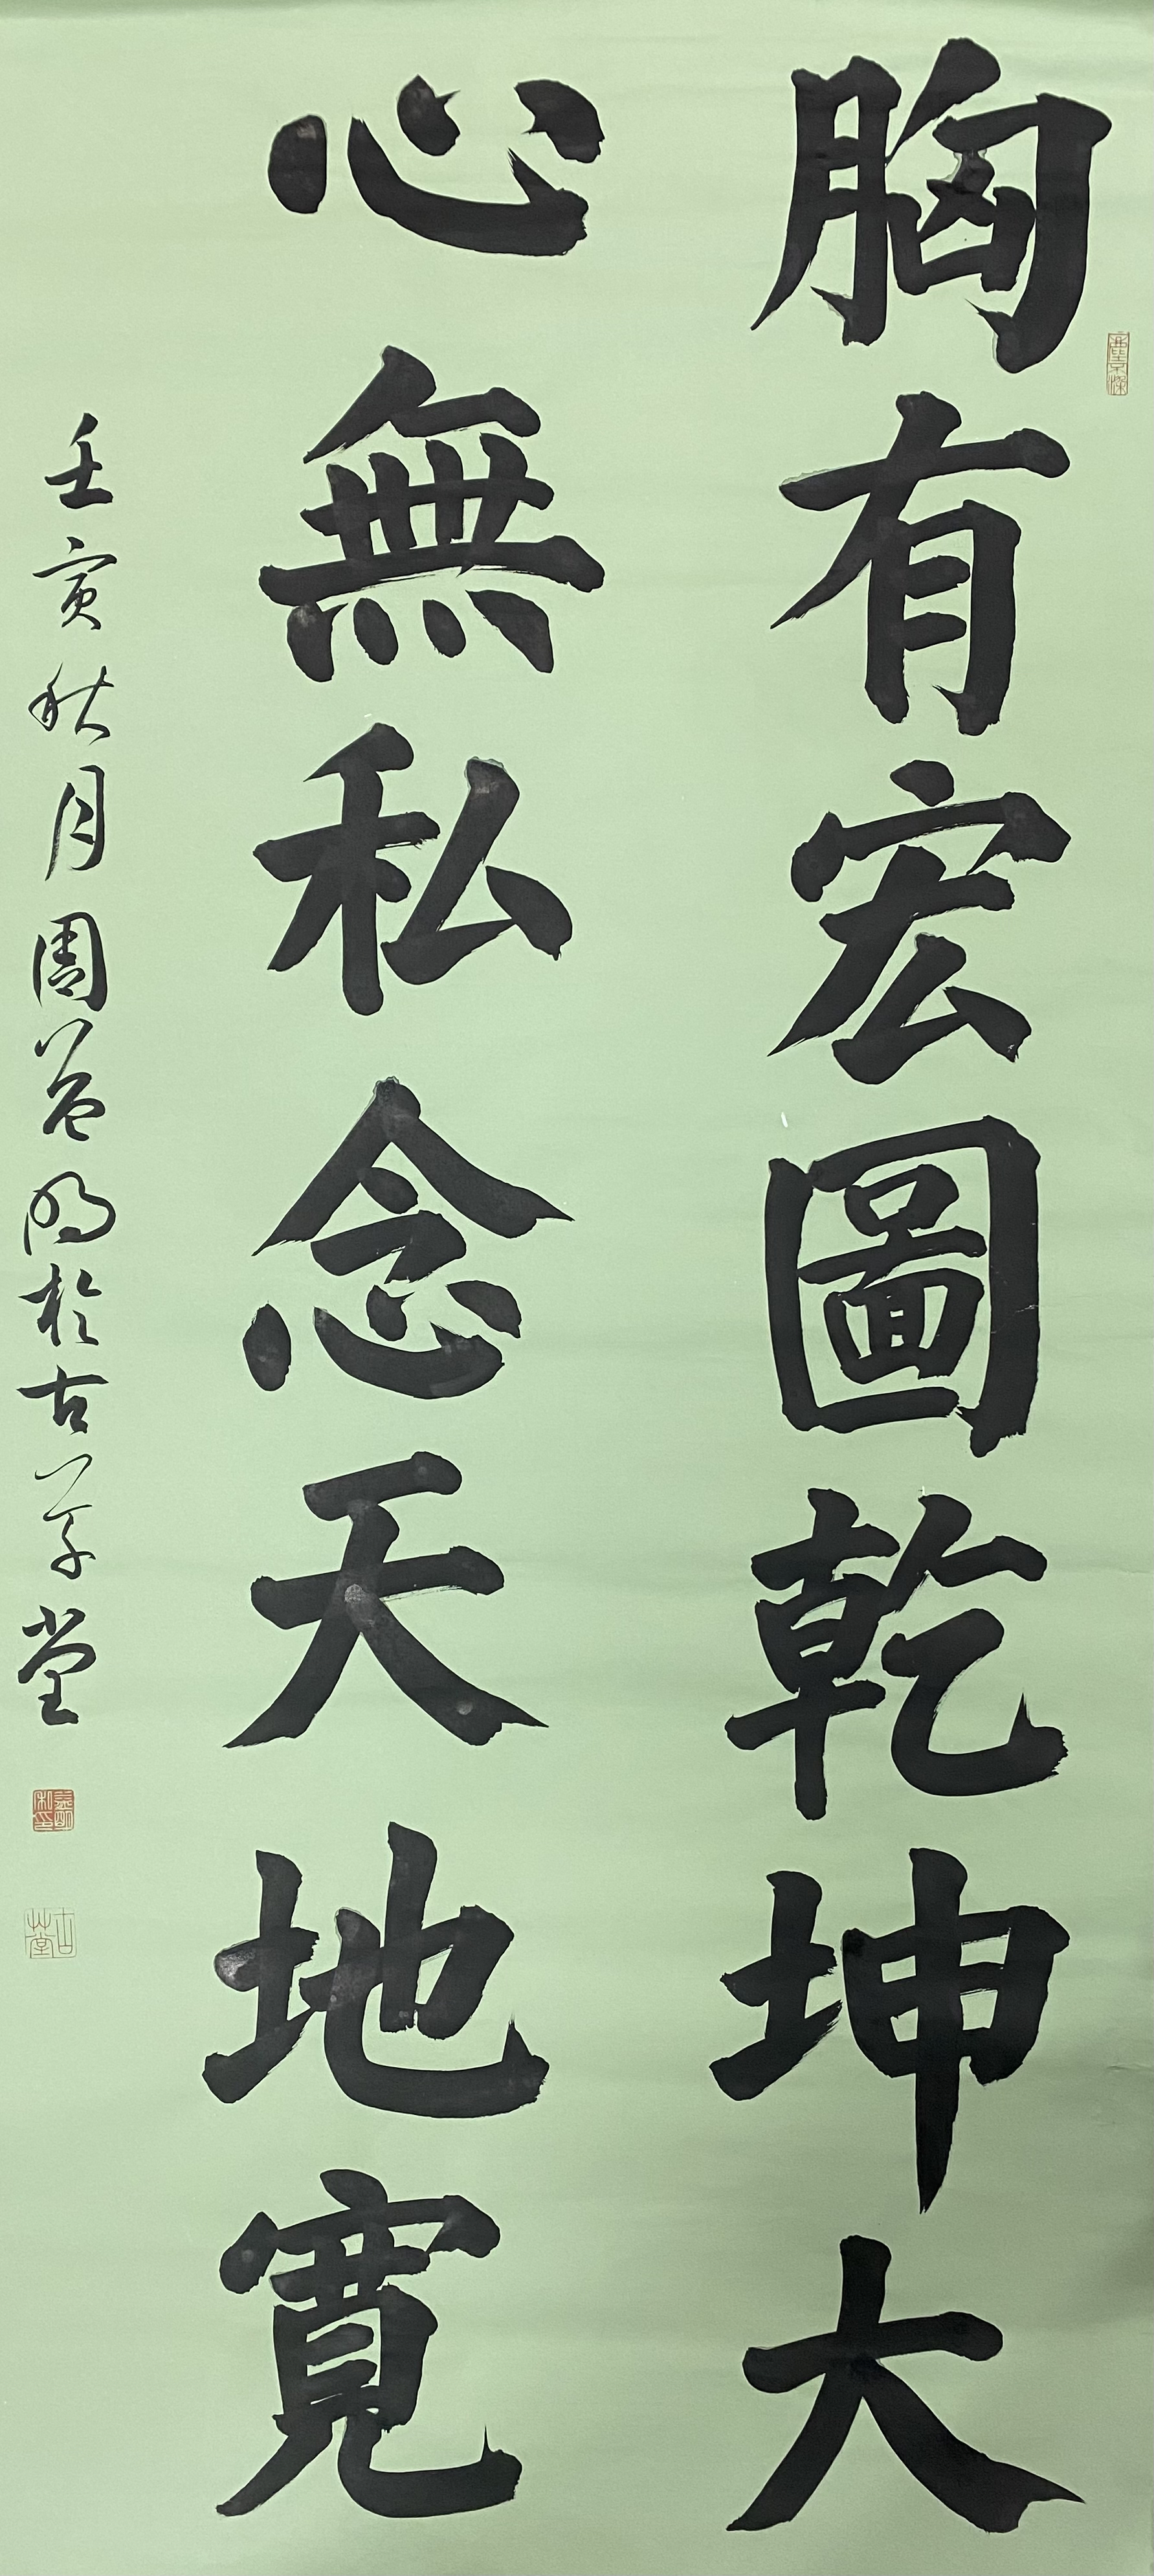 胸有宏圖乾坤大
心無私念天地寬
壬寅秋月周益明於古草堂